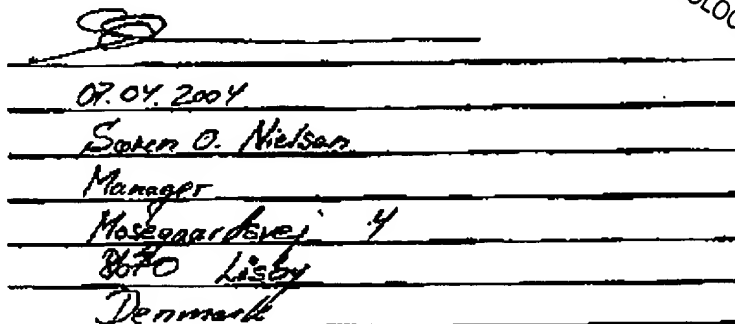 07.04.2004
Søren O. Nielsen
Manager
Mosegaardsvej 4
8670 Låsby
Denmark